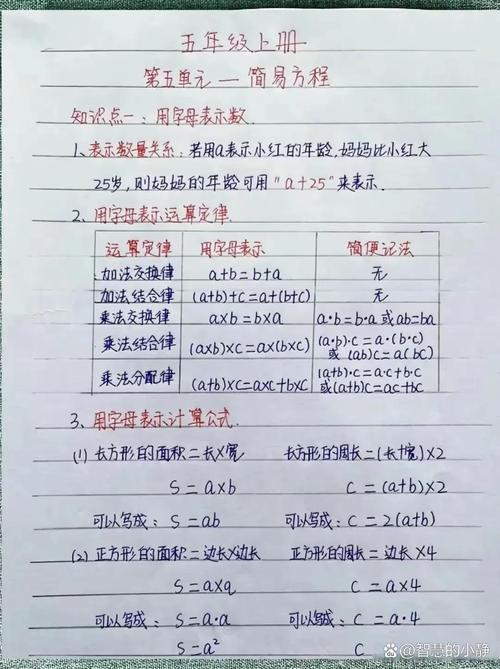 五年级上册
第五单元—简易方程
知识点一:用字母表示数.
1、表示数量关系:若用a表示小红的年龄,妈妈比小红大
25岁,则妈妈的年龄可用"a+25"来表示.
2、用字母表示运算定律.
运算定律 用字母表示 简便记法
加法交换律 a+b=b+a 无
加法结合律 (a+b)+c=a+(b+c) 无
乘法交换律 a×b=b×a a·b=b·a或ab=ba
乘法结合律 (a×b)×c=a×(b×c) (a·b)·c=a·(b·c)
或 (ab)c=a(bc)
乘法分配律 (a+b)×c=a×c+b×c (a+b)·c=a·c+b·c
或(a+b)c=ac+bc
3、用字母表示计算公式.
(1) 长方形的面积=长×宽 长方形的周长=(长+宽)×2
S=a×b C=(a+b)×2
可以写成:S=ab 可以写成:C=2(a+b)
(2) 正方形的面积=边长×边长 正方形的周长=边长×4
S=a×a C=a×4
可以写成:S=a·a 可以写成:C=a·4
S=a² C
@智慧的小静